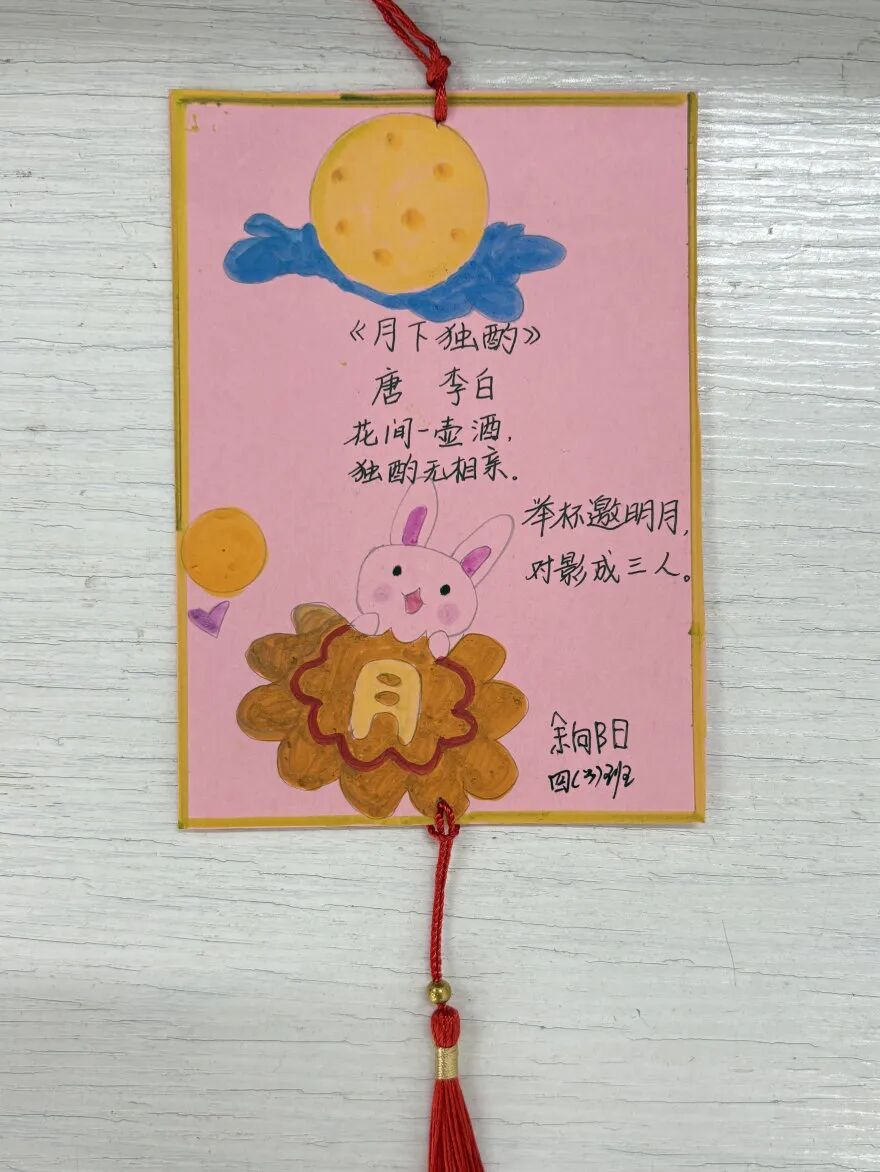 《月下独酌》
唐 李白
花间一壶酒,
独酌无相亲。
举杯邀明月,
对影成三人。
月
余向阳
四(3)班